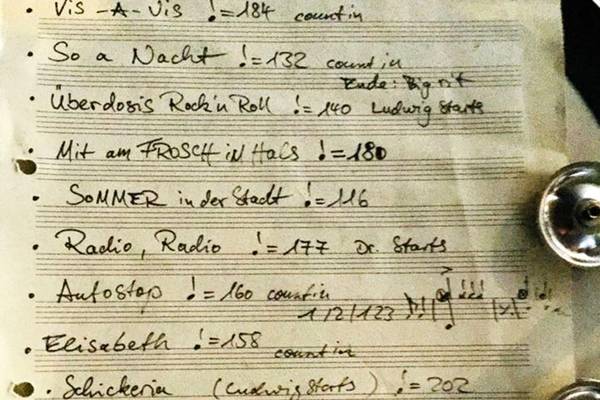 • Vis-A-Vis ♩=184 count in
• So a Nacht ♩=132 count in
Ende: Big rit
• Überdosis Rock'n Roll ♩=140 Ludwig Starts
• Mit am FROSCH iN Hals ♩=180
• SOMMER in der Stadt ♩=116
• Radio, Radio ♩=177 Dr. Starts
• Autostop ♩=160 count in
1/2/123
• Elisabeth ♩=158 count in
• Schickeria (Ludwig Starts) ♩=202